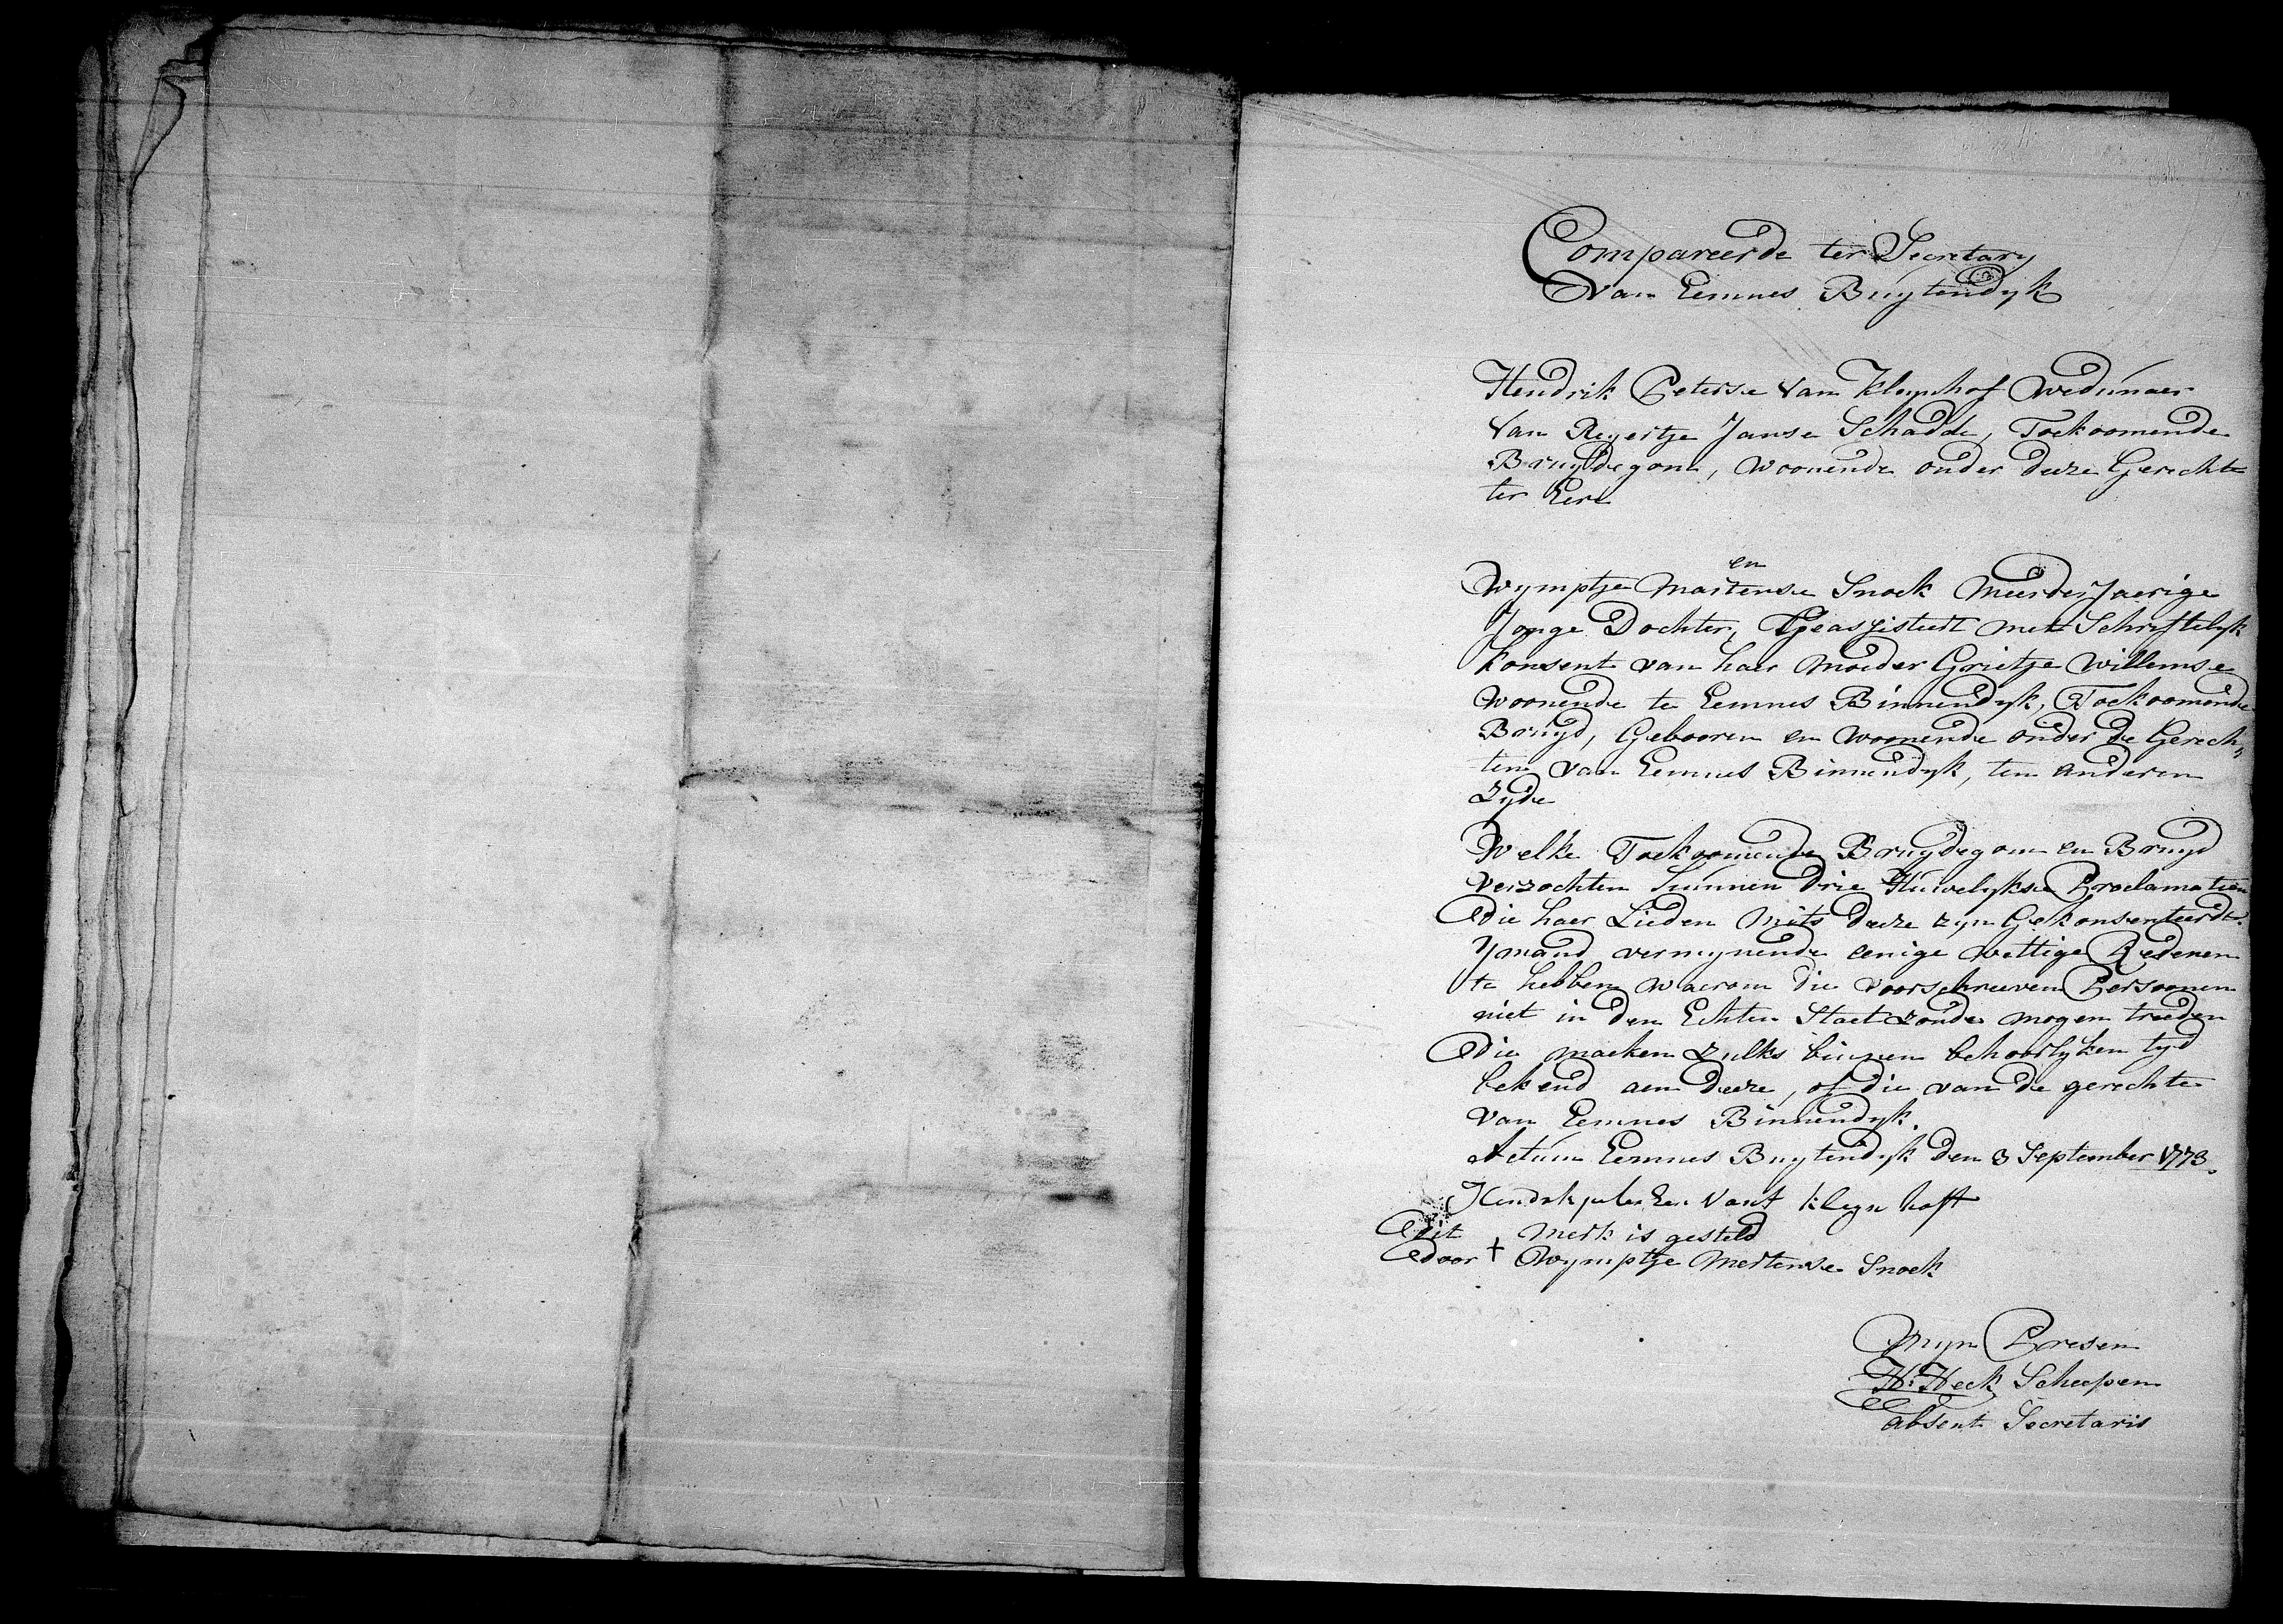 Compareerde ter Secretary
van Eemnes Buytendyk
Hendrik Peterse van Kleynhof Wedunaer
van Reyertje Janse Schadde, Toekoomende
Bruydegom, woonende onder deeze Gerechte
ter Eere
en
Wymptje Martense Snoek Meerder Jaerige
Jonge Dochter, Geassisteert met Schriftelyk
konsent van haer moeder Grietje Willemse
woonende te Eemnes Binnendyk, Toekoomende
Bruyd, Gebooren en woonende onder de Gerech„
ten van Eemnes Binnendyk, ten anderen
Zyde
Welke Toekoomende Bruydegom en Bruyd
verzochten hunnen drie Huwelykse Proclamatien
die haer Lieden mits deeze zyn Gekonsenteerdt.
Ymand vermynende eenige wettige Redenen
te hebben waerom die voorschreeven Persoonen
niet in den Echten Staet zoude mogen treeden
die maeken zulks binnen behoorlyken tyd
bekend aen deeze, of die van de gerechte
van Eemnes Binnendyk.
Actum Eemnes Buytendyk den 3 September 1773.
Hendrk vant kleyn hoft
Dit merk is gesteld
door + Wymptje Mertense Snoek
Myn Presen
H: Heck Scheepen
absent Secretaris